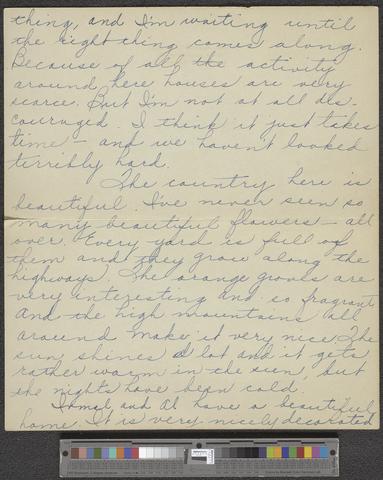 thing, and I'm waiting until
the right thing comes along.
Because of all the activity
around here houses are very
scarce. But I'm not at all dis-
couraged. I think it just takes
time – and we haven't looked
terribly hard.
The country here is
beautiful. I've never seen so
many beautiful flowers – all
over. Every yard is full of
them and they grow along the
highways. The orange groves are
very interesting and so fragrant
And the high mountains all
around make it very nice. The
sun shines a lot and it gets
rather warm in the sun, but
the nights have been cold.
and Al have a beautiful
home. It is very nicely decorated